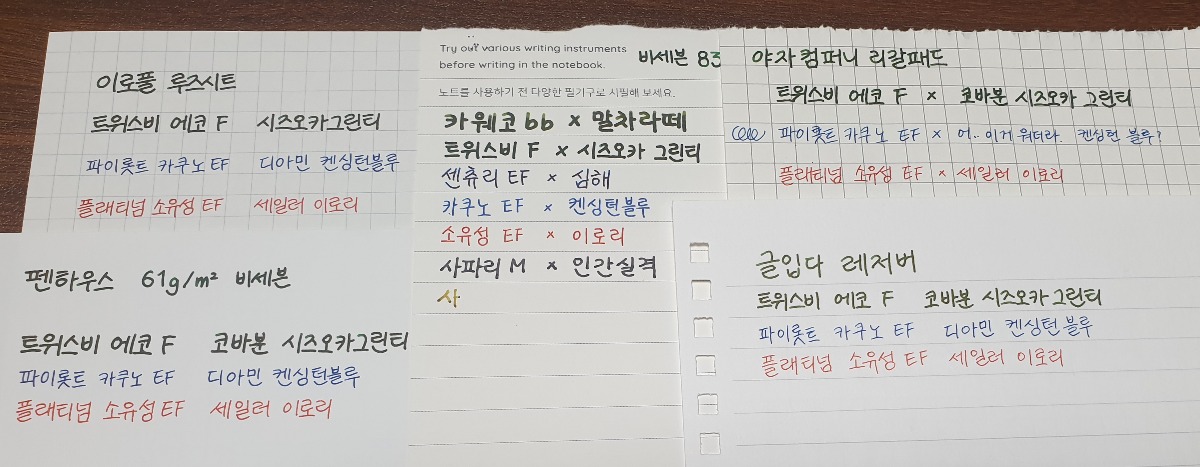 이로플 루즈시트
트위스비 에코 F 시즈오카그린티
파이롯트 카쿠노 EF 디아민 켄싱턴블루
플래티넘 소유성 EF 세일러 이로리
펜하우스 61g/m² 비세븐
트위스비 에코 F 코바분 시즈오카그린티
파이롯트 카쿠노 EF 디아민 켄싱턴블루
플래티넘 소유성 EF 세일러 이로리
Try out various writing instruments
before writing in the notebook.
비세븐 83
노트를 사용하기 전 다양한 필기구로 시필해 보세요.
카웨코 bb × 말차라떼
트위스비 F × 시즈오카 그린티
센츄리 EF × 심해
카쿠노 EF × 켄싱턴블루
소유성 EF × 이로리
사파리 M × 인간실격
사
야자컴퍼니 리갈패드
트위스비 에코 F × 코바분 시즈오카 그린티
파이롯트 카쿠노 EF × 어.. 이거 뭐더라. 켄싱턴 블루?
플래티넘 소유성 EF × 세일러 이로리
글입다 레저버
트위스비 에코 F 코바분 시즈오카그린티
파이롯트 카쿠노 EF 디아민 켄싱턴블루
플래티넘 소유성 EF 세일러 이로리